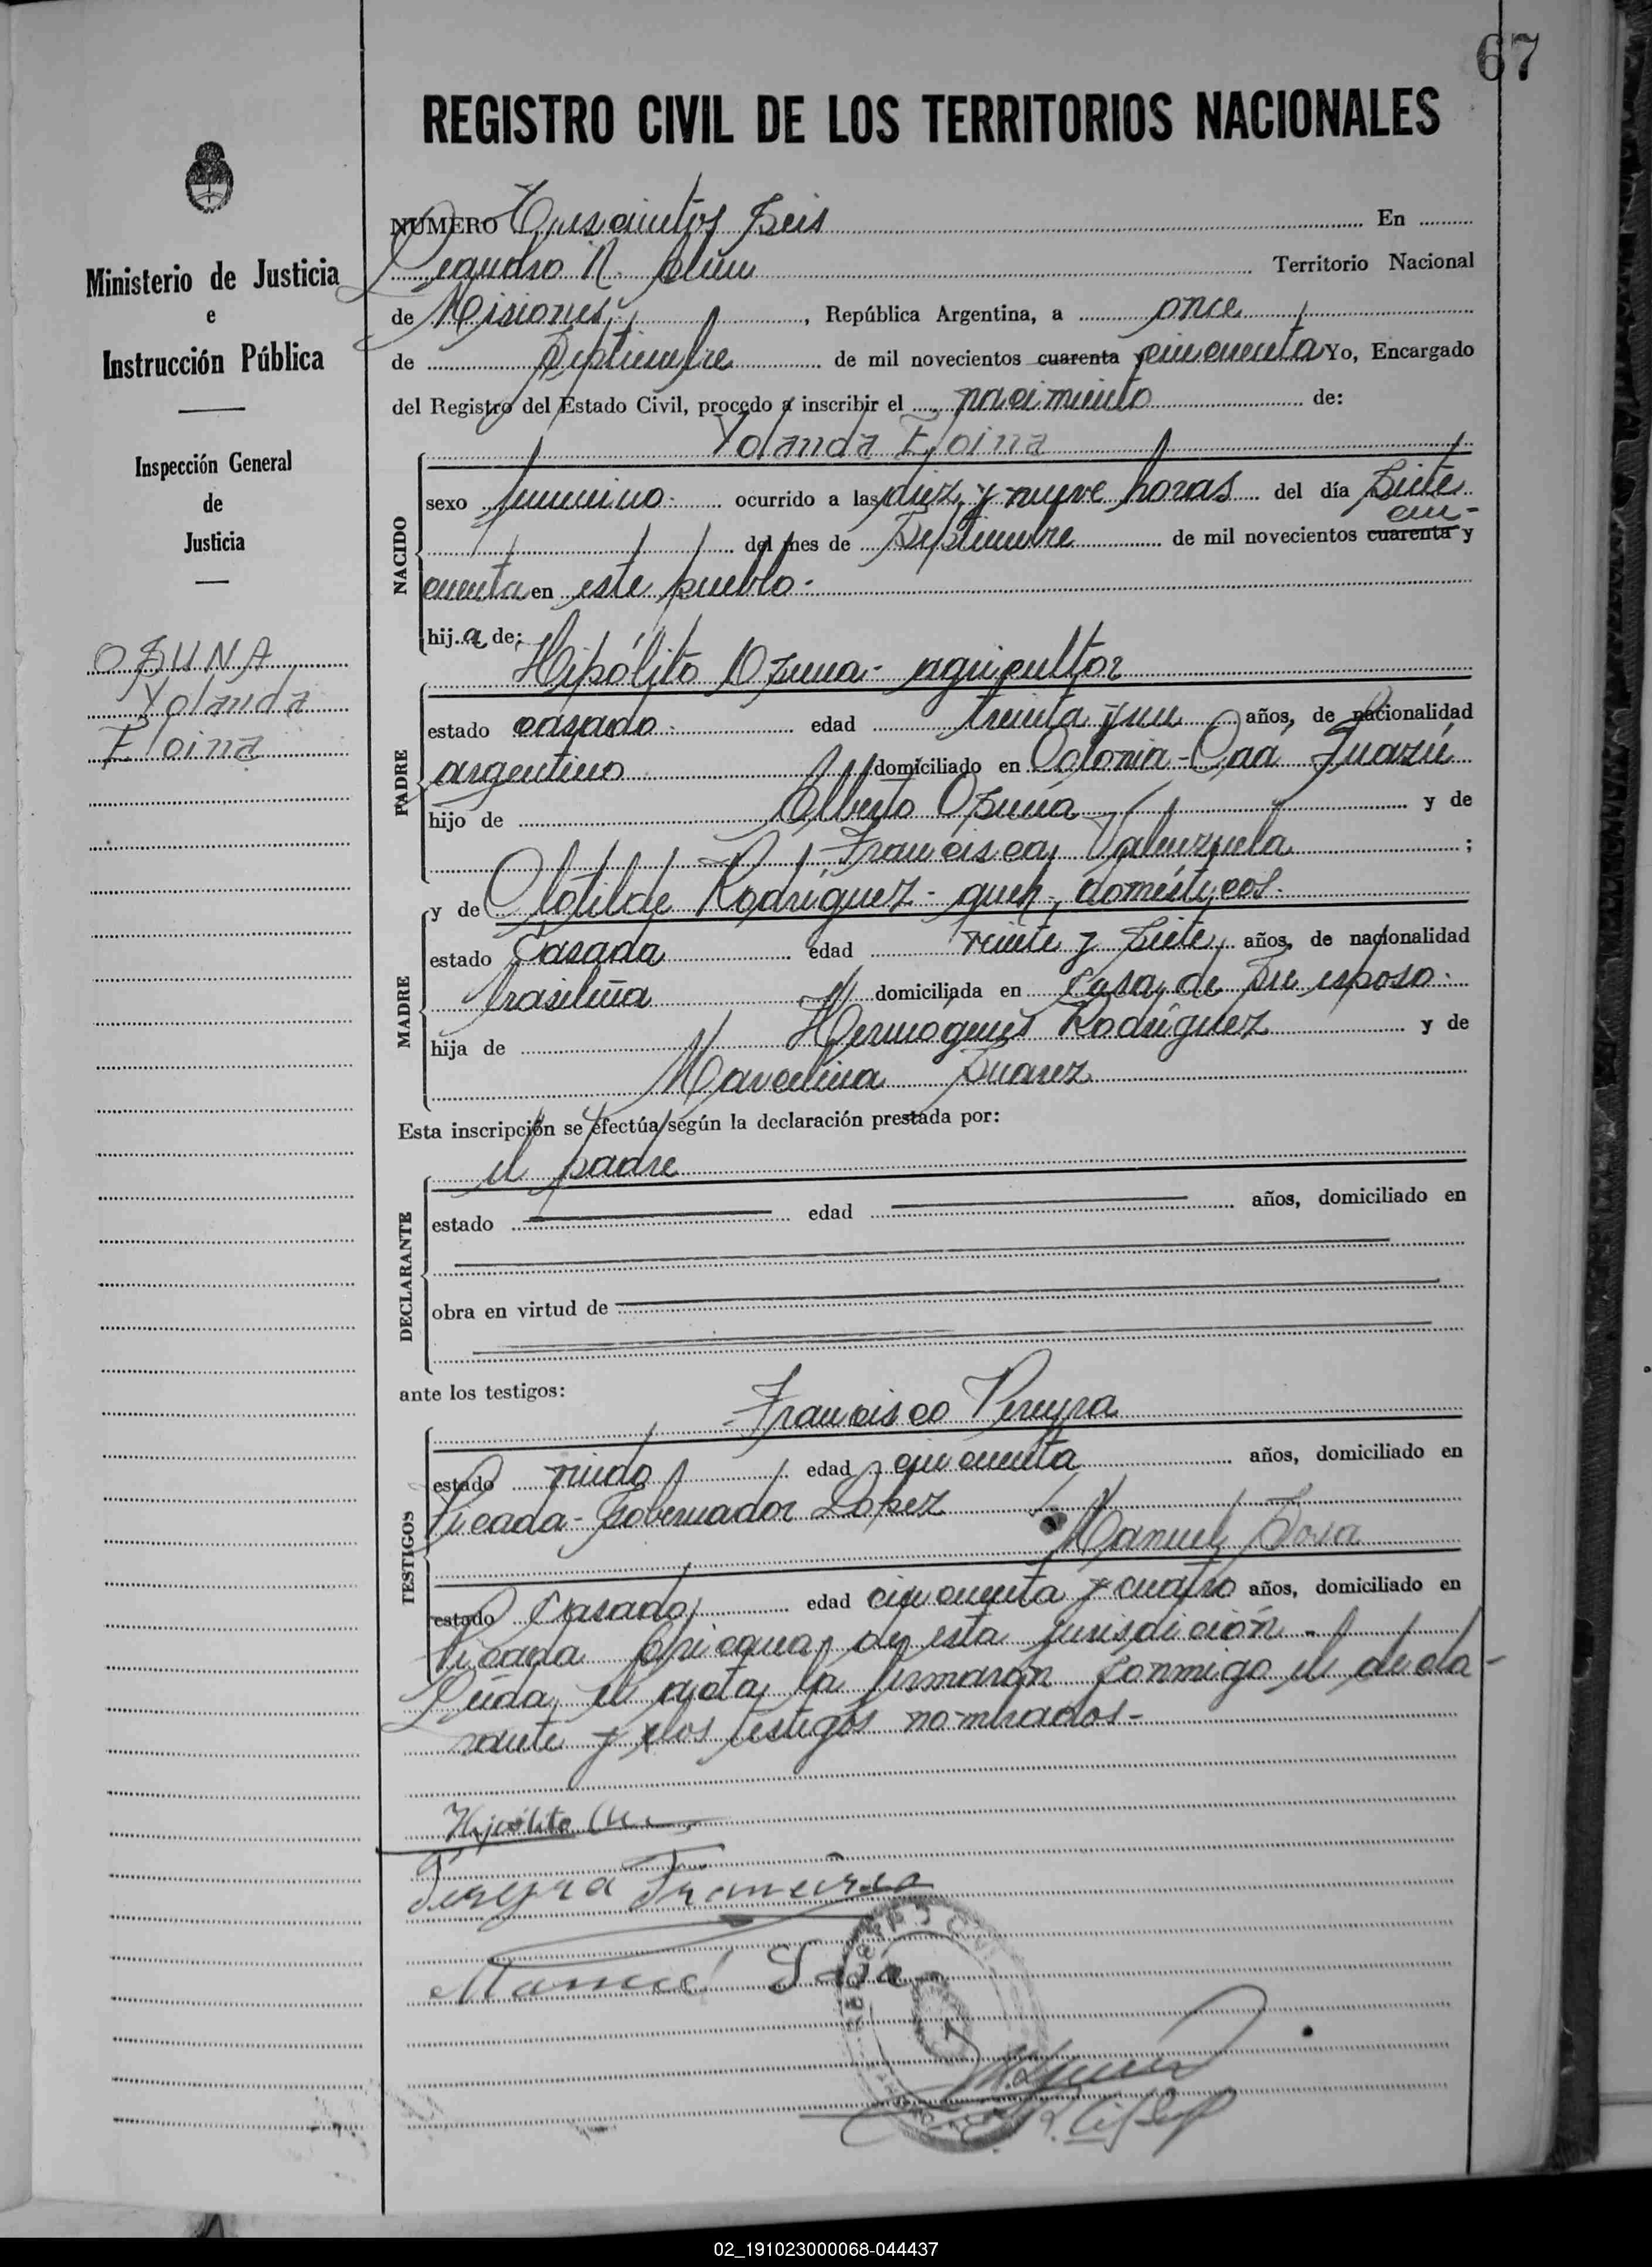 67
REGISTRO CIVIL DE LOS TERRITORIOS NACIONALES
Ministerio de Justicia
e
Instrucción Pública
Inspección General
de
Justicia
OZUNA
Yolanda
Eloina
NUMERO Trescientos seis En
Leandro N. Alem Territorio Nacional
de Misiones, República Argentina, a once
de Septiembre de mil novecientos cuarenta y cincuenta Yo, Encargado
del Registro del Estado Civil, procedo a inscribir el nacimiento de:
Yolanda Eloina
NACIDO
sexo femenino ocurrido a las diez y nueve horas del día siete
del mes de Septiembre de mil novecientos cuarenta y cin-
cuenta en este pueblo.
hij a de:
Hipólito Ozuna - agricultor
PADRE
estado casado edad treinta y un años, de nacionalidad
argentino domiciliado en Colonia - Caá Guazú
hijo de Alberto Ozuna y de
Francisca Valenzuela ;
y de Clotilde Rodríguez - queh. domésticos.
MADRE
estado Casada edad veinte y siete años, de nacionalidad
brasileña domiciliada en casa de su esposo.
hija de Hermógenes Rodríguez y de
Marcelina Suarez
Esta inscripción se efectúa según la declaración prestada por:
el padre
DECLARANTE
estado edad años, domiciliado en
obra en virtud de
ante los testigos:
Francisco Pereyra
TESTIGOS
estado viudo edad cincuenta años, domiciliado en
Picada - Gobernador López
Manuel Sosa
estado Casado edad cincuenta y cuatro años, domiciliado en
Picada de esta jurisdicción.
Leída el acta la firmaron conmigo el decla-
rante y los testigos nombrados-
Hipólito
Pereyra Francisco
Manuel Sosa
02_191023000068-044437